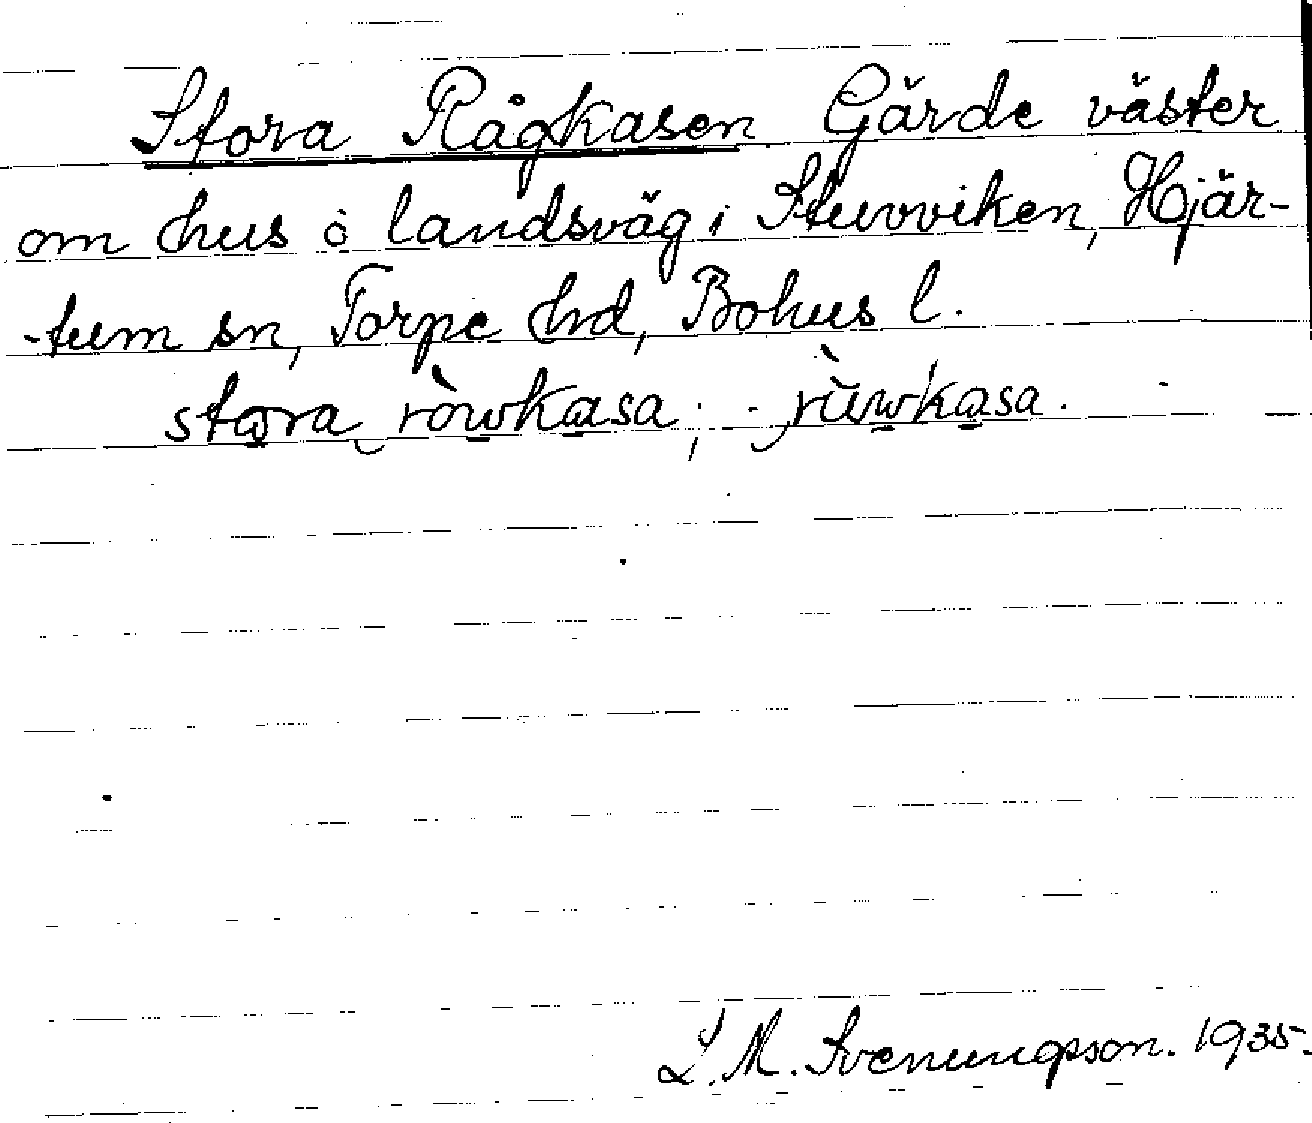 Stora Rågkasen Gärde väster
om hus å landsväg i Stuvviken, Hjär-
tum sn, Torpe hd, Bohus l.
stora ròwkasa; - rùwkasa.
L. M. Svenungson. 1935.